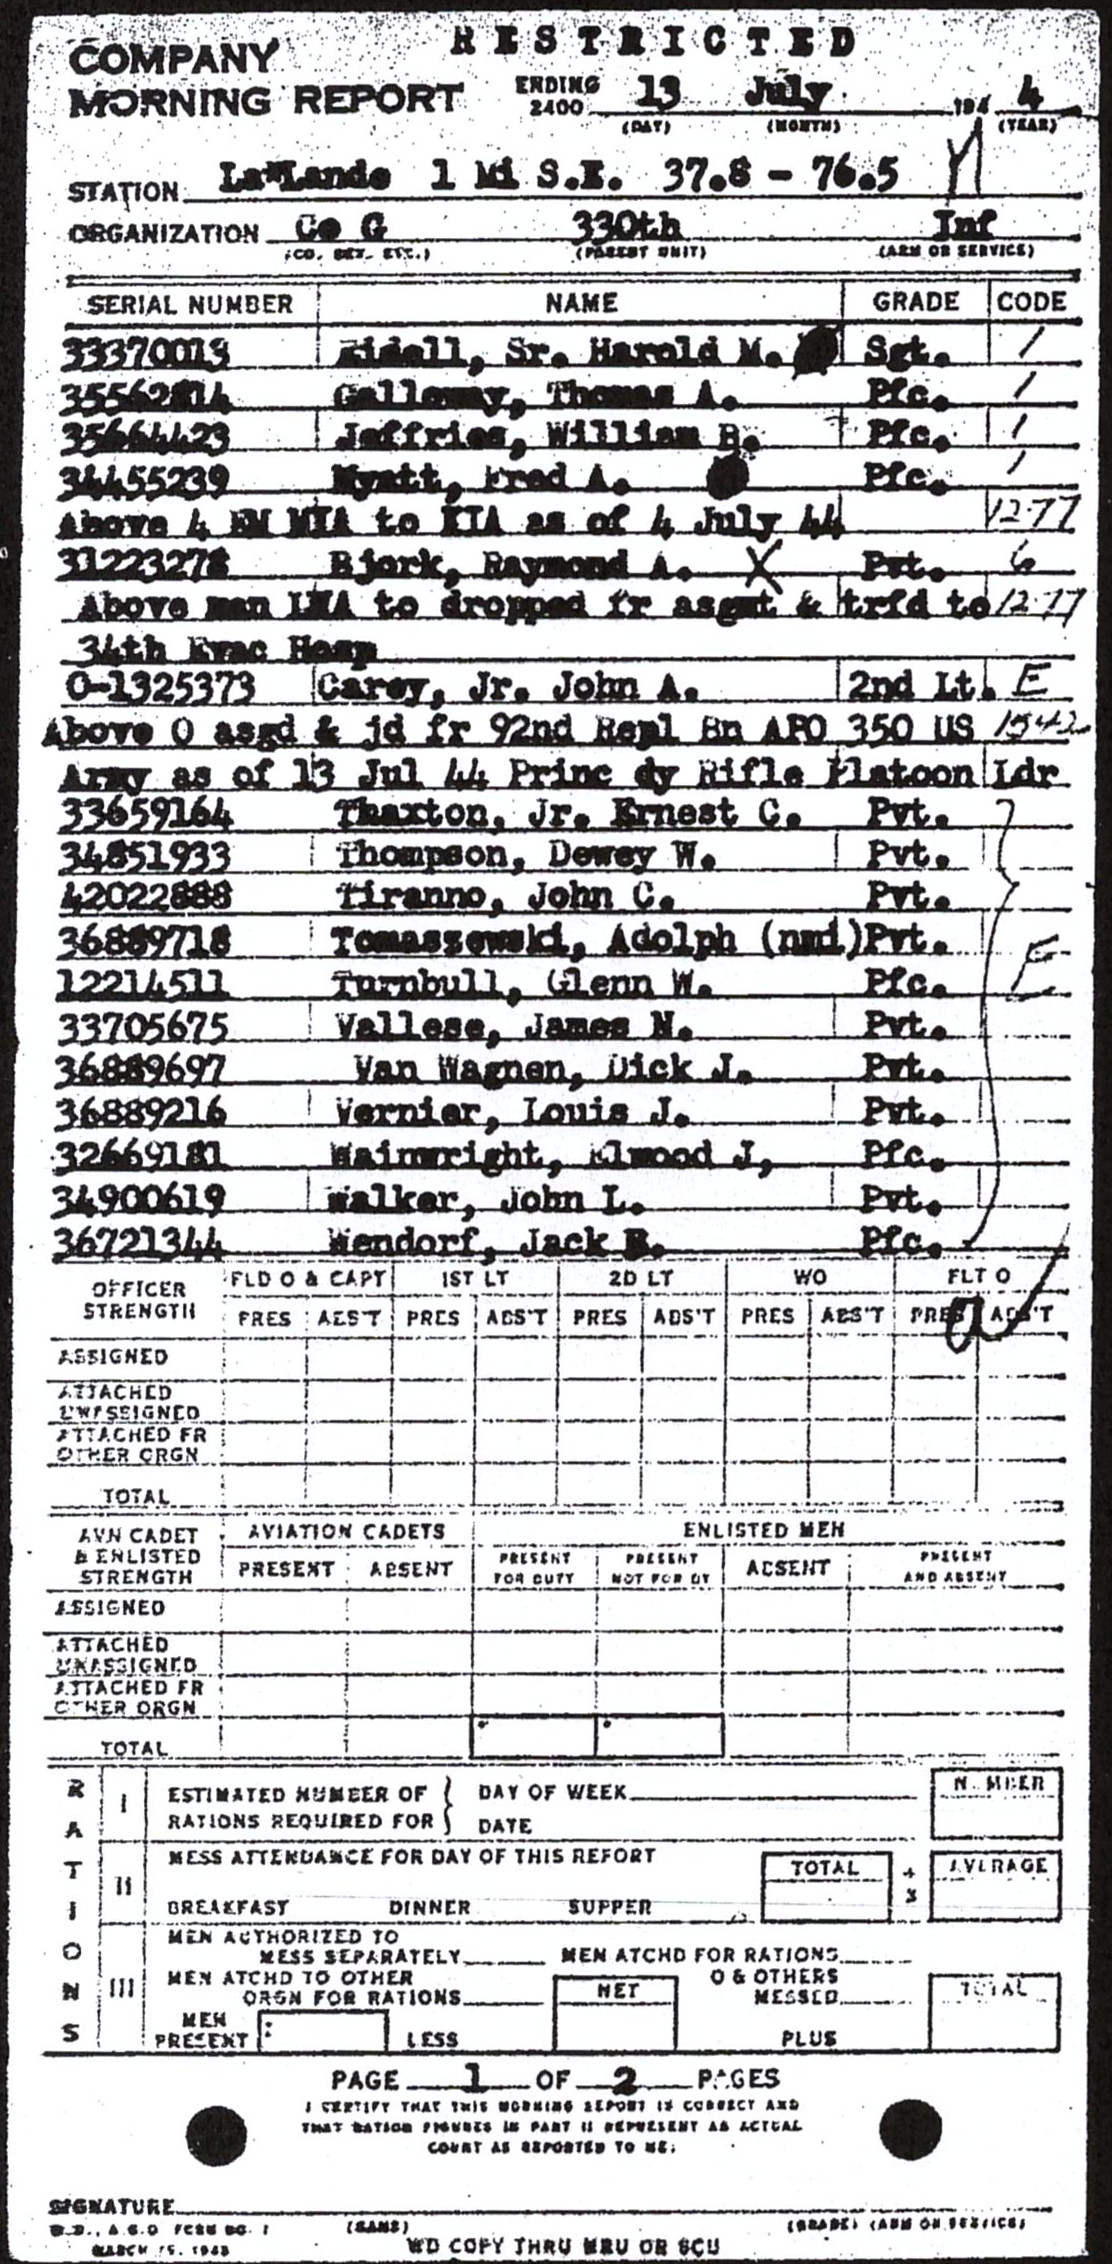 RESTRICTED
COMPANY
MORNING REPORT
ENDING 2400 13 July 194 4
(DAY) (MONTH) (YEAR)
STATION La Lande 1 Mi S.E. 37.8 - 76.5
ORGANIZATION Co G 330th Inf
(CO. BTY. ETC.) (PARENT UNIT) (ARM OR SERVICE)
SERIAL NUMBER NAME GRADE CODE
33370013 Sr. Harold M. Sgt. /
Galloway, Thomas A. Pfc. /
35664423 Jeffries, William B. Pfc. /
34455239 Myatt, Fred A. Pfc. /
Above 4 EM MIA to KIA as of 4 July 44 12-77
31223278 Bjork, Raymond A. X Pvt. 6
Above man LWA to dropped fr asgmt & trfd to 12-77
34th Evac Hosp
O-1325373 Carey, Jr. John A. 2nd Lt. E
Above O asgd & jd fr 92nd Repl Bn APO 350 US 1542
Army as of 13 Jul 44 Princ dy Rifle Platoon Ldr
33659164 Thaxton, Jr. Ernest C. Pvt.
34851933 Thompson, Dewey W. Pvt.
42022888 Tiranno, John C. Pvt.
36889718 Tomaszewski, Adolph (nmi) Pvt. E
12214511 Turnbull, Glenn W. Pfc.
33705675 Vallese, James N. Pvt.
36889697 Van Wagnen, Dick J. Pvt.
36889216 Vernier, Louis J. Pvt.
32669181 Wainwright, Elwood J, Pfc.
34900619 Walker, John L. Pvt.
36721344 Wendorf, Jack R. Pfc.
OFFICER STRENGTH FLD O & CAPT 1ST LT 2D LT WO FLT O
PRES ABS'T PRES ABS'T PRES ABS'T PRES ABS'T PRES ABS'T
ASSIGNED
ATTACHED UNASSIGNED
ATTACHED FR OTHER ORGN
TOTAL
AVN CADET & ENLISTED STRENGTH AVIATION CADETS ENLISTED MEN
PRESENT ABSENT PRESENT FOR DUTY PRESENT NOT FOR DY ABSENT PRESENT AND ABSENT
ASSIGNED
ATTACHED UNASSIGNED
ATTACHED FR OTHER ORGN
TOTAL
RATIONS
I ESTIMATED NUMBER OF RATIONS REQUIRED FOR DAY OF WEEK NUMBER
DATE
II MESS ATTENDANCE FOR DAY OF THIS REPORT TOTAL ÷ 3 AVERAGE
BREAKFAST DINNER SUPPER
III MEN AUTHORIZED TO MESS SEPARATELY MEN ATCHD FOR RATIONS
MEN ATCHD TO OTHER ORGN FOR RATIONS NET O & OTHERS MESSED TOTAL
MEN PRESENT LESS PLUS
PAGE 1 OF 2 PAGES
I CERTIFY THAT THIS MORNING REPORT IS CORRECT AND
THAT RATION FIGURES IN PART II REPRESENT AN ACTUAL
COUNT AS REPORTED TO ME:
SIGNATURE
W.D., A.G.O FORM NO. 1 (NAME) (GRADE) (ARM OR SERVICE)
MARCH 15, 1943 WD COPY THRU MRU OR SCU